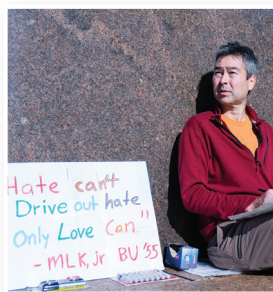 Hate can't
Drive out hate
Only Love Can."
- MLK, Jr BU '55